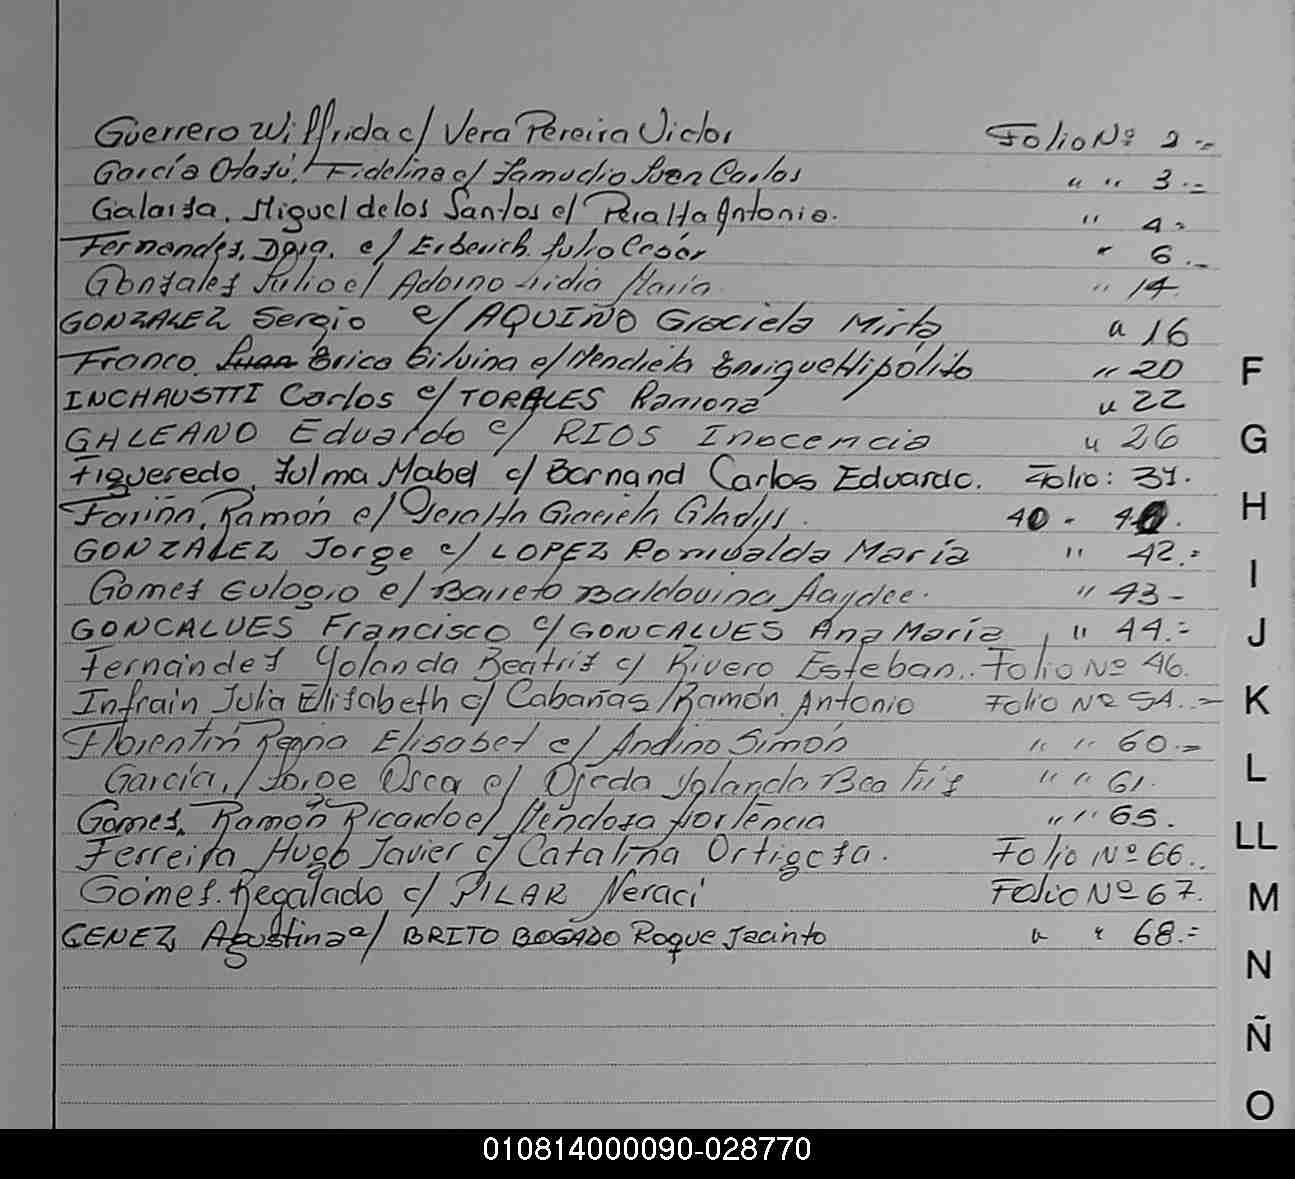 Guerrero Wilfrida c/ Vera Pereira Victor Folio Nº 2.=
García Otazú, Fidelina c/ Zamudio Juan Carlos " " 3.=
Galarza, Miguel de los Santos c/ Peralta Antonia. " 4.=
Fernandez, Dora. c/ Julio César " 6.=
Gonzalez Julio c/ Adorno Lidia María " 14.
GONZALEZ Sergio c/ AQUINO Graciela Mirta " 16
Franco, Juan Erico Silvina c/ Mendieta Enrique Hipólito " 20
INCHAUSTTI Carlos c/ TORALES Ramona " 22
GALEANO Eduardo c/ RIOS Inocencia " 26
Figueredo, Zulma Mabel c/ Bornand Carlos Eduardo. Folio: 31.
Fariña, Ramón c/ Peralta Graciela Gladys. 40 - 40.
GONZALEZ Jorge c/ LOPEZ Romualda María " 42.=
Gomez Eulogio c/ Barreto Baldovina Haydee. " 43-
GONCALVES Francisco c/ GONCALVES Ana María " 44.=
Fernández Yolanda Beatriz c/ Rivero Esteban.. Folio Nº 46.
Infrain Julia Elizabeth c/ Cabañas Ramón Antonio Folio Nº 54.=
Florentín Regina Elisabet c/ Andino Simón " " 60.=
García, Jorge Osca c/ Ojeda Yolanda Beatriz " " 61.
Gomez, Ramón Ricardo c/ Mendoza Hortencia " " 65.
Ferreira Hugo Javier c/ Catalina Ortigoza. Folio Nº 66..
Gómez. Regalado c/ PILAR Neraci Folio Nº 67.
GENEZ Agustina c/ BRITO BOGADO Roque Jacinto " " 68.=
F
G
H
I
J
K
L
LL
M
N
Ñ
O
010814000090-028770